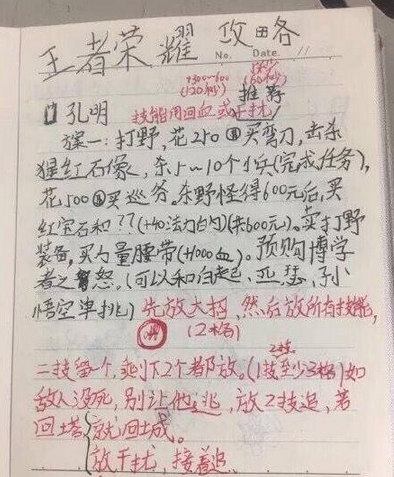 王者荣耀 攻略
No. Date. 11
+300~600
(120秒) (60秒)
推荐
孔明 技能用回血或干扰
方案一:打野,花250买弯刀,击杀
猩红石像,杀5~10个小兵(完成任务),
花500买巡爷。杀野怪得600元后,买
红宝石和??(+40法力白勺)(共600元)。卖打野
装备,买力量腰带(+1000血)。预购博学
者之怒。(可以和白起、亚瑟、孙
悟空单挑)先放大招,然后放所有技能,
(2格)
2技
二技留一个,剩下2个都放。(1技至少3格)如
敌人没死,别让他逃,放2技追,若
回塔 就回城。
放干扰,接着追